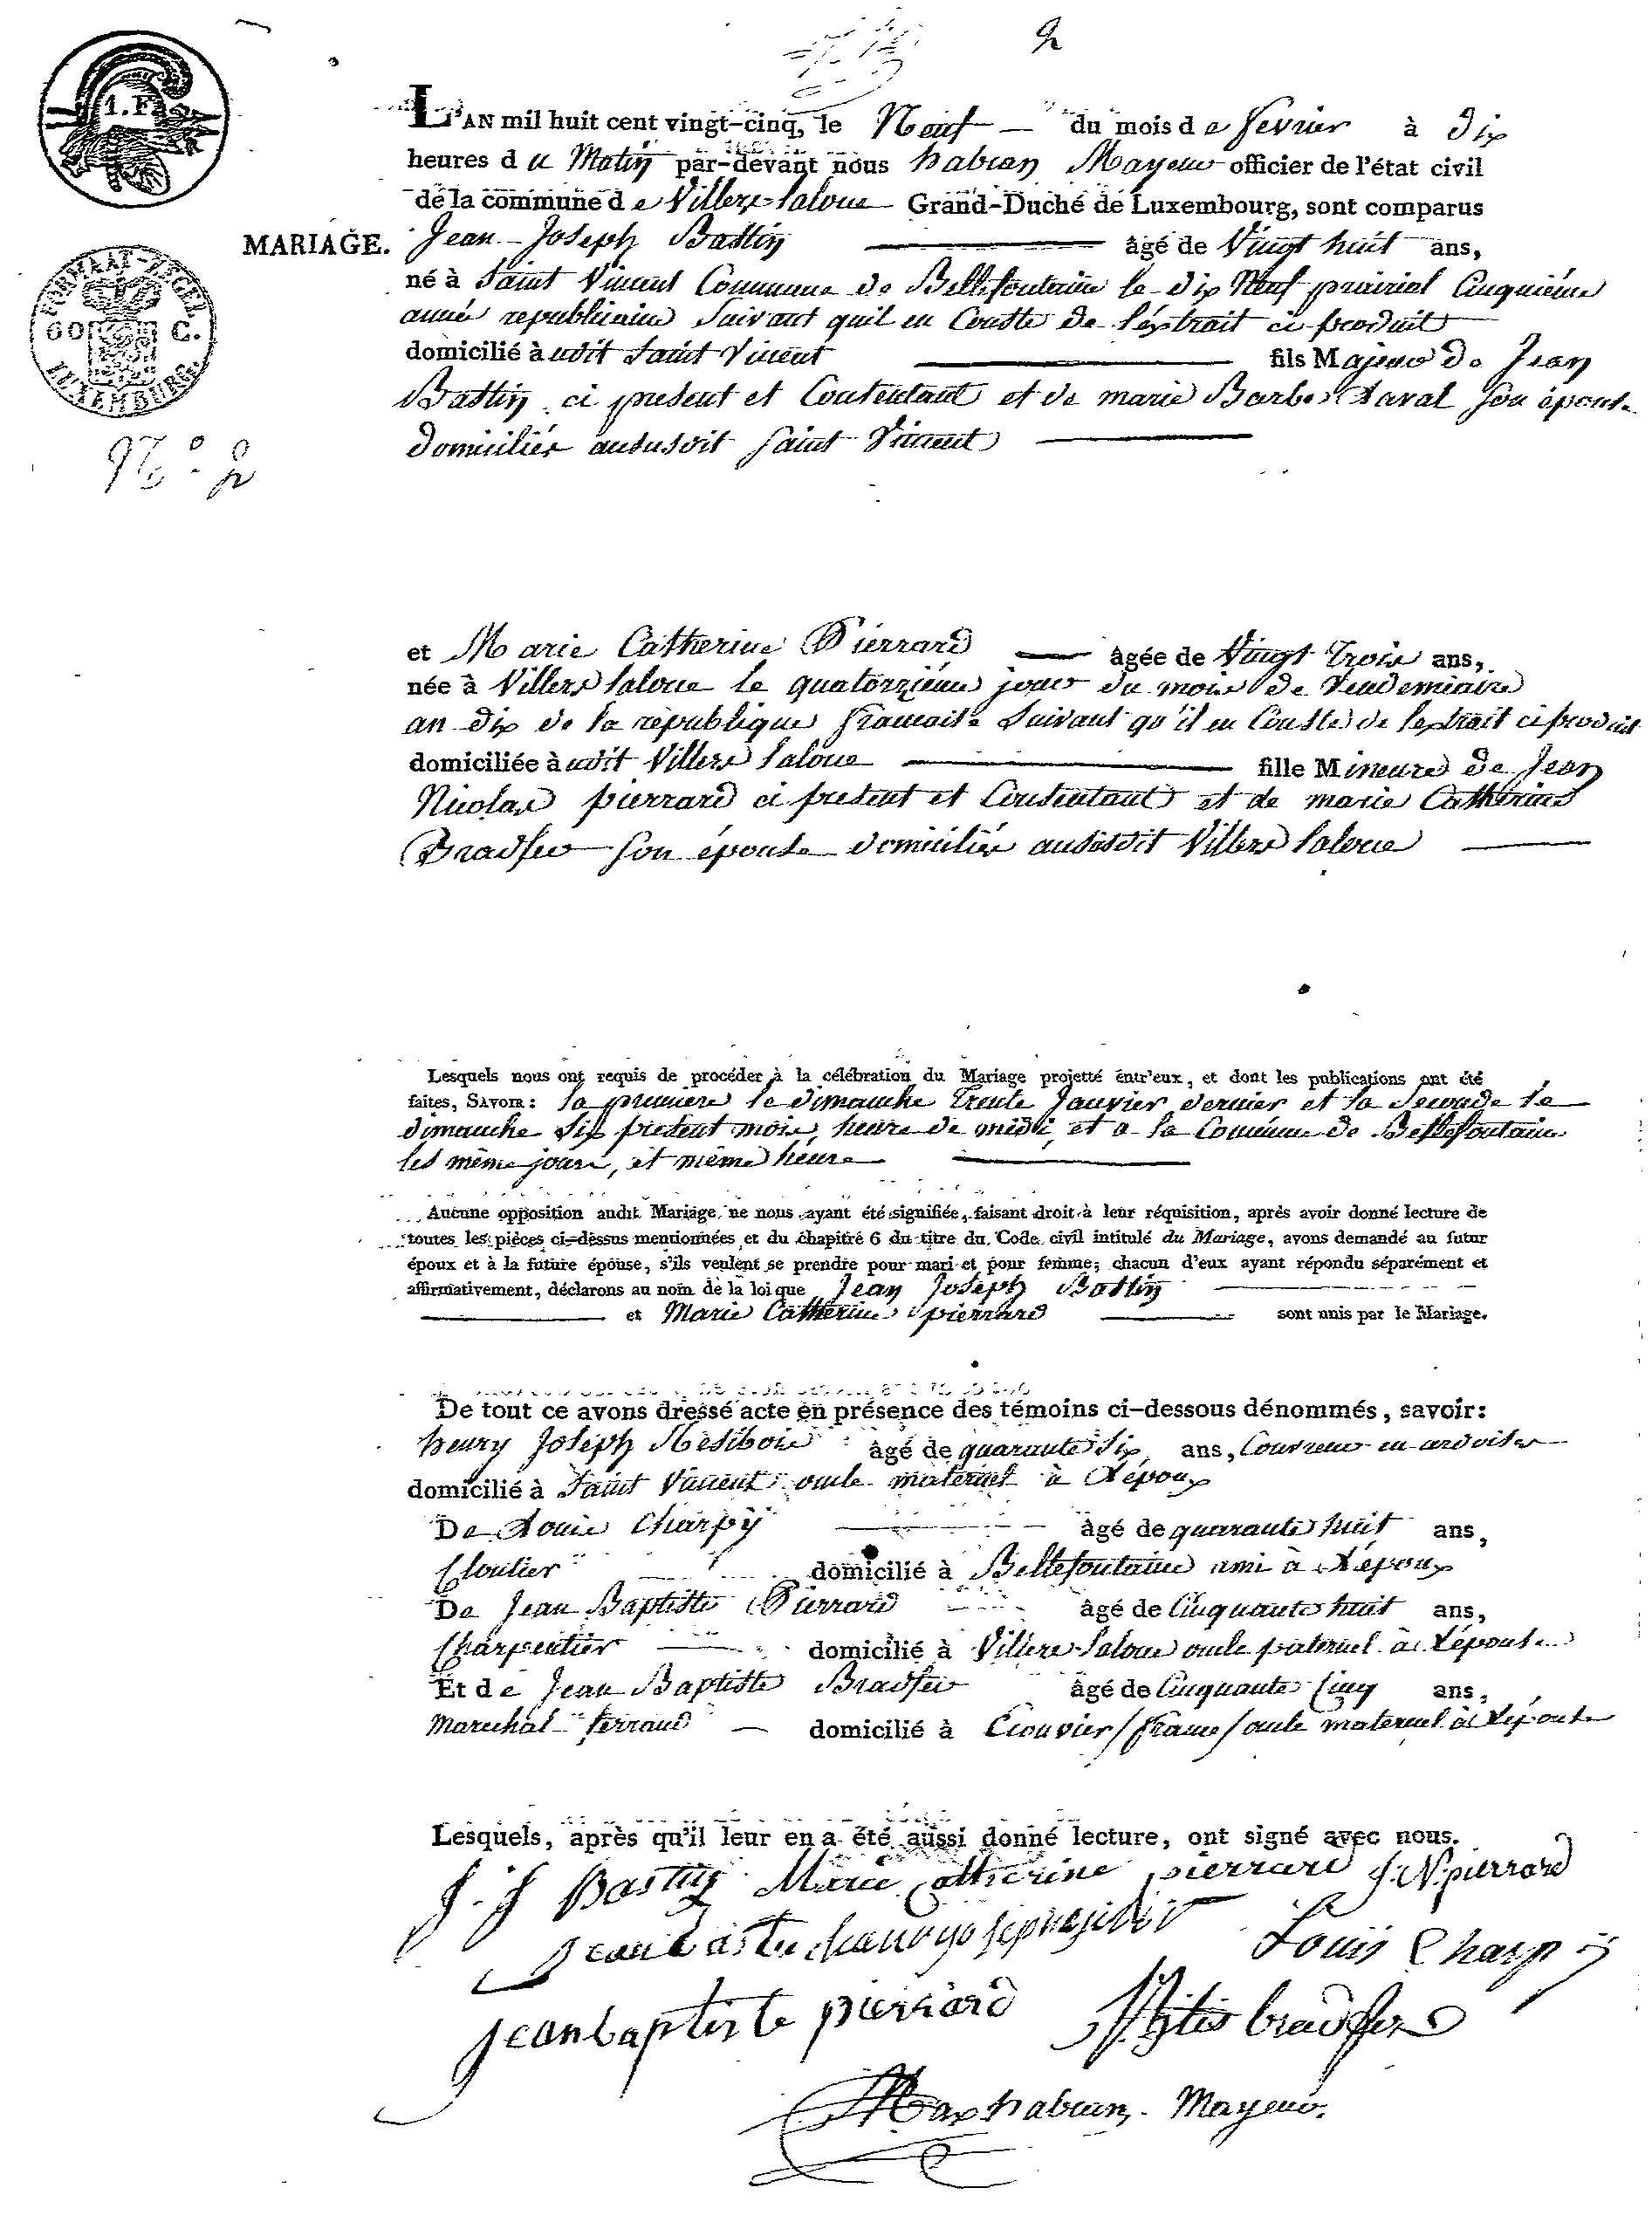 2
1. F.
L'AN mil huit cent vingt-cinq, le Neuf du mois de fevrier à Dix
heures du Matin par-devant nous habran Mayeur officier de l'état civil
de la commune de Villers-laloue Grand-Duché de Luxembourg, sont comparus
MARIAGE.
Jean Joseph Bastin âgé de Vingt huit ans,
né à Saint Vincent Commune de Bellefontaine le dix Neuf prairial Cinquiéme
année republicaine Suivant quil en Conste de l'éxtrait ci produit
domicilié à udit Saint Vincent fils Majeur de Jean
Bastin ci present et Contentant et de marie Barbe Laval Son épouse
domiciliés audusdit Saint Vincent
FORMAAT-ZEGEL
60 C.
LUXEMBURG
N° 2
et Marie Catherine Pierrard âgée de Vingt Trois ans,
née à Villers laloue le quatorziéme jour du mois de Vendemiaire
an dix de la république francaise Suivant qu'il en Conste de lextrait ci produit
domiciliée à udit Villers laloue fille Mineure de Jean
Nicolas pierrard ci present et Consentant et de marie Catherine
Bradfer Son épouse domiciliés audusdit Villers laloue
Lesquels nous ont requis de procéder à la célébration du Mariage projetté entr'eux, et dont les publications ont été
faites, SAVOIR: la premiere le dimanche Trente Janvier dernier et la Seconde le
dimanche Six present mois, heure de midi, et a la Commune de Bellefontaine
les même jours, et même heure
Aucune opposition audit Mariage ne nous ayant été signifiée, faisant droit à leur réquisition, après avoir donné lecture de
toutes les pièces ci-dessus mentionnées et du chapitre 6 du titre du Code civil intitulé du Mariage, avons demandé au futur
époux et à la future épouse, s'ils veulent se prendre pour mari et pour femme; chacun d'eux ayant répondu séparément et
affirmativement, déclarons au nom de la loi que Jean Joseph Bastin
et Marie Catherine pierrard sont unis par le Mariage.
De tout ce avons dressé acte en présence des témoins ci-dessous dénommés, savoir:
henry Joseph âgé de quarante Six ans, Couvreur en ardoises
domicilié à Saint Vincent oncle maternel à Lépoux
De Louis Charpÿ âgé de quarante huit ans,
Cloutier domicilié à Bellefontaine ami à Lépoux
De Jean Baptiste Pierrard âgé de Cinquante huit ans,
Charpentier domicilié à Villers laloue oncle paternel à Lépouse
Et de Jean Baptiste Bradfer âgé de Cinquante Cinq ans,
Marechal ferrand domicilié à Ecouvier / france / oncle maternel à Lépouse
Lesquels, après qu'il leur en a été aussi donné lecture, ont signé avec nous.
J. J Bastin Marie Catherine pierrard J. N. pierrard
Jean Bastin Louis Charpÿ
jean baptiste pierrard bradfer
habran, Mayeur.